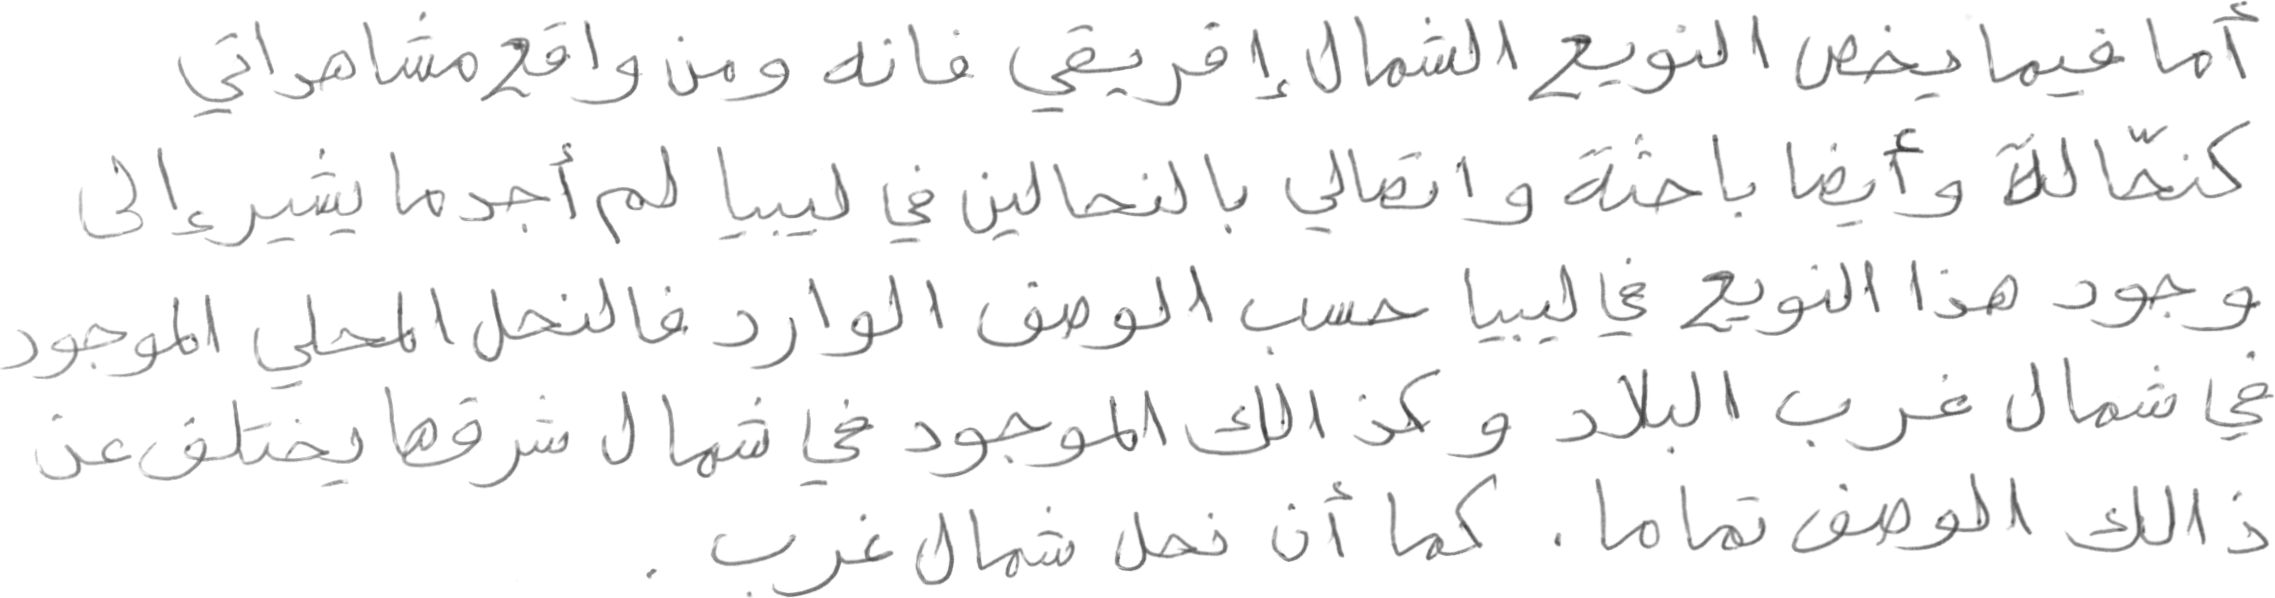 أما فيما يخص النويع الشمال إفريقي فانه ومن واقع مشاهداتي
كنحّالة وأيضا باحثة واتصالي بالنحالين في ليبيا لم أجد ما يشير إلى
وجود هذا النويع في ليبيا حسب الوصف الوارد فالنحل المحلي الموجود
في شمال غرب البلاد وكذالك الموجود في شمال شرقها يختلف عن
ذالك الوصف تماما . كما أن نحل شمال غرب .